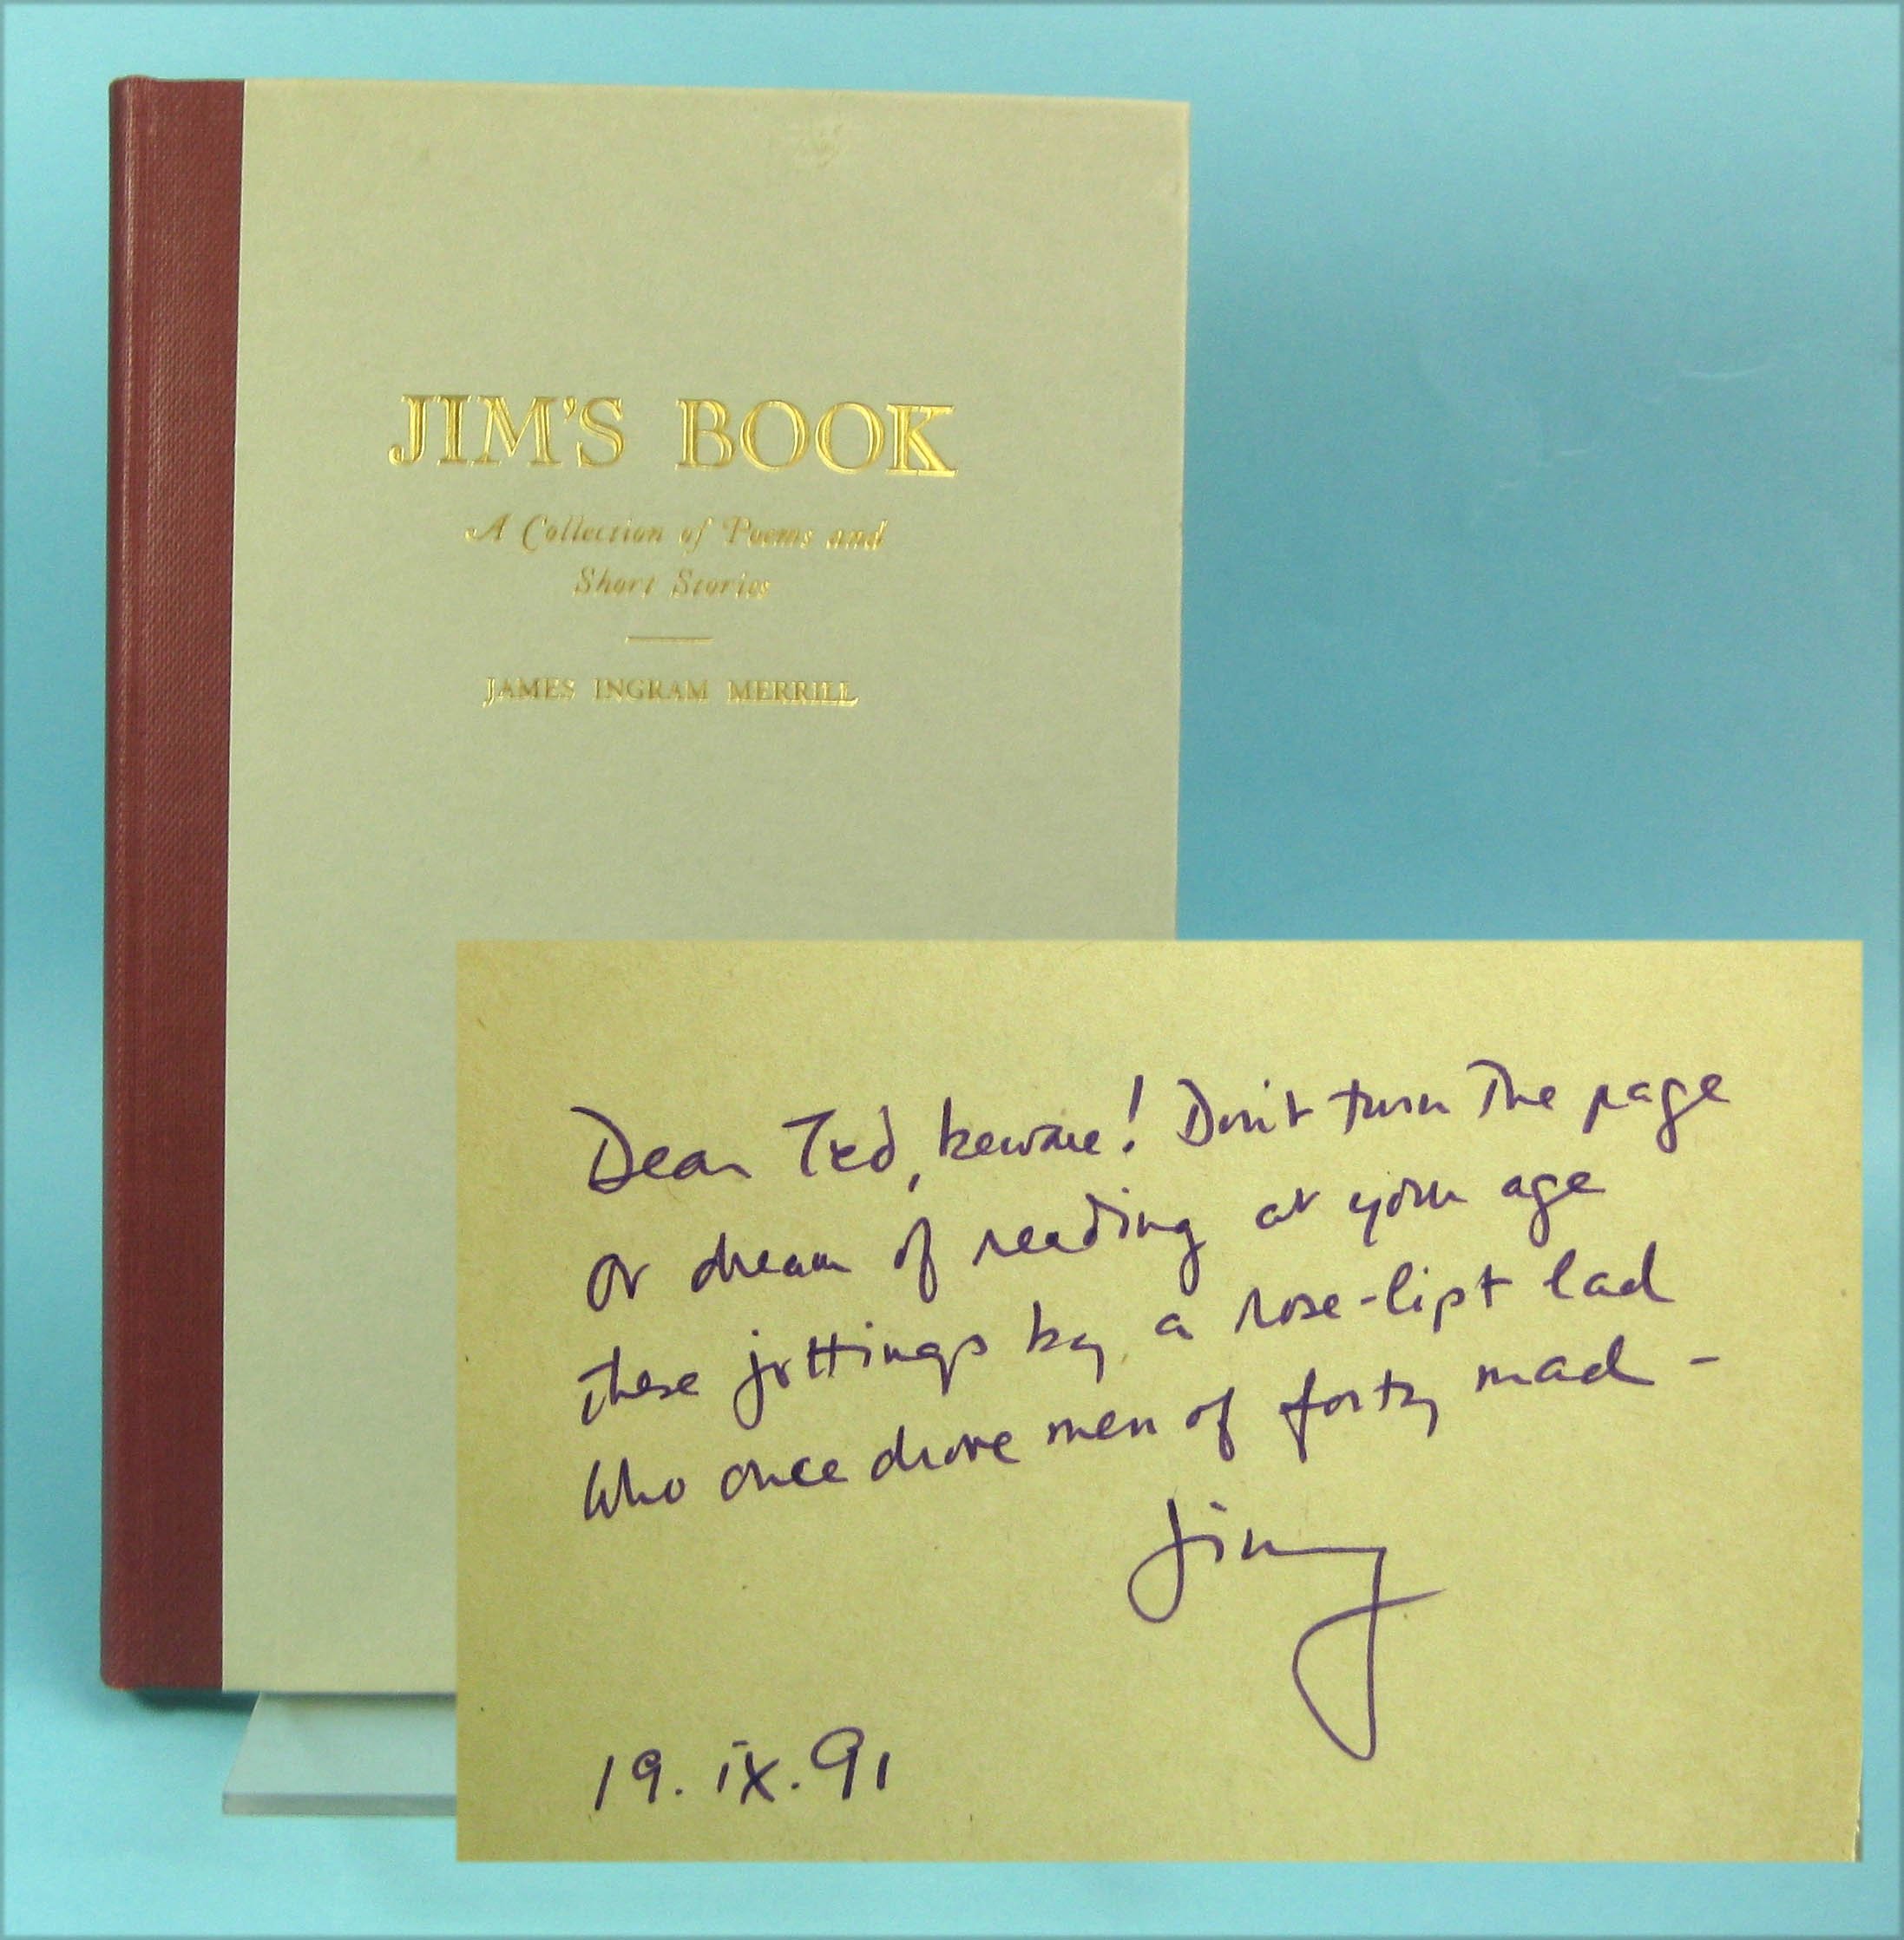 JIM'S BOOK
A Collection of Poems and
Short Stories
JAMES INGRAM MERRILL
Dear Ted, beware! Don't turn the page
or dream of reading at your age
these jottings by a rose-lipt lad
Who once drove men of forty mad –
Jimmy
19. ix. 91